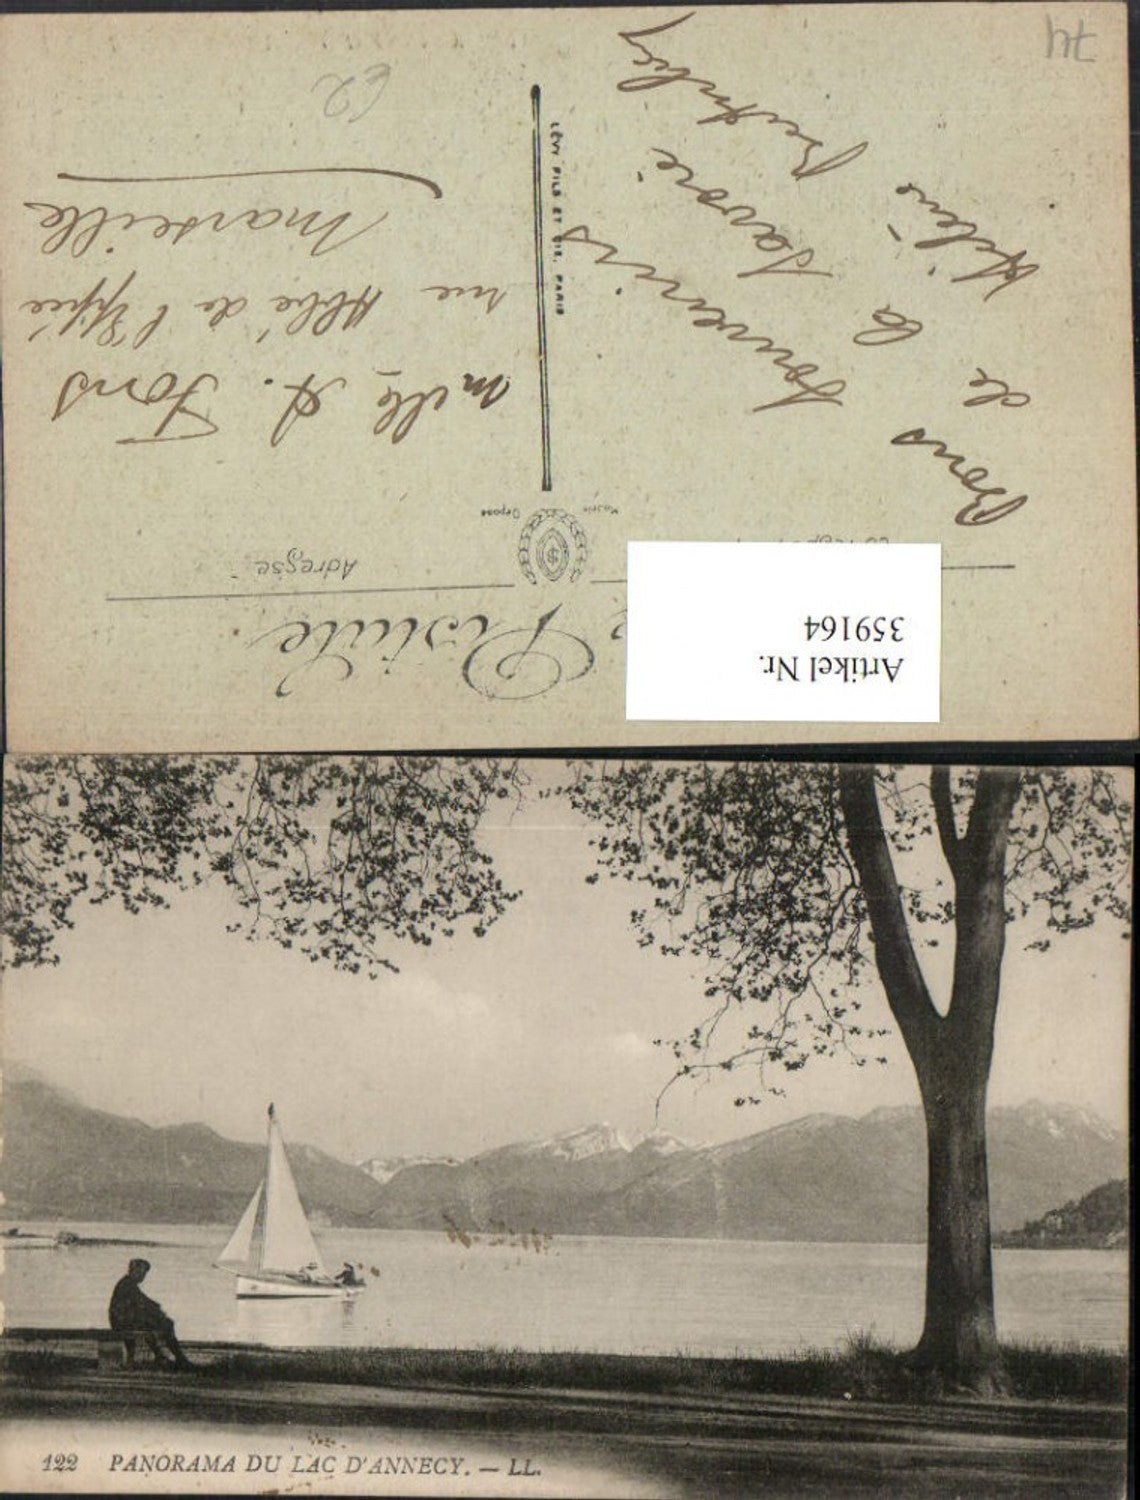 74
62
Carte Postale
Adresse
Modèle Déposé
LÉVY FILS ET CIE, PARIS
Bons
souvenirs
de la Savoie
Hélène
Mlle A. Fons
rue Abbé de l'Eppée
Marseille
Artikel Nr.
359164
122 PANORAMA DU LAC D'ANNECY. — LL.